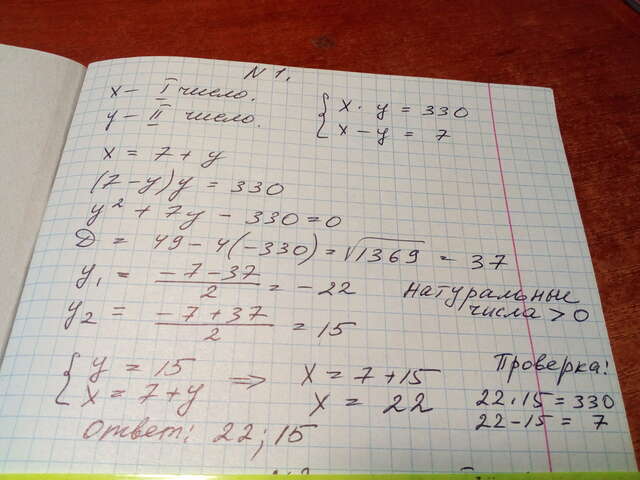 N 1.
x - I число.
y - II число.
{ x · y = 330
x - y = 7
x = 7 + y
(7 - y) y = 330
y² + 7y - 330 = 0
D = 49 - 4(-330) = √1369 = 37
y₁ = (-7 - 37)/2 = -22
натуральные
числа > 0
y₂ = (-7 + 37)/2 = 15
{ y = 15
x = 7 + y
=> x = 7 + 15
x = 22
Проверка:
22 · 15 = 330
22 - 15 = 7
Ответ: 22; 15